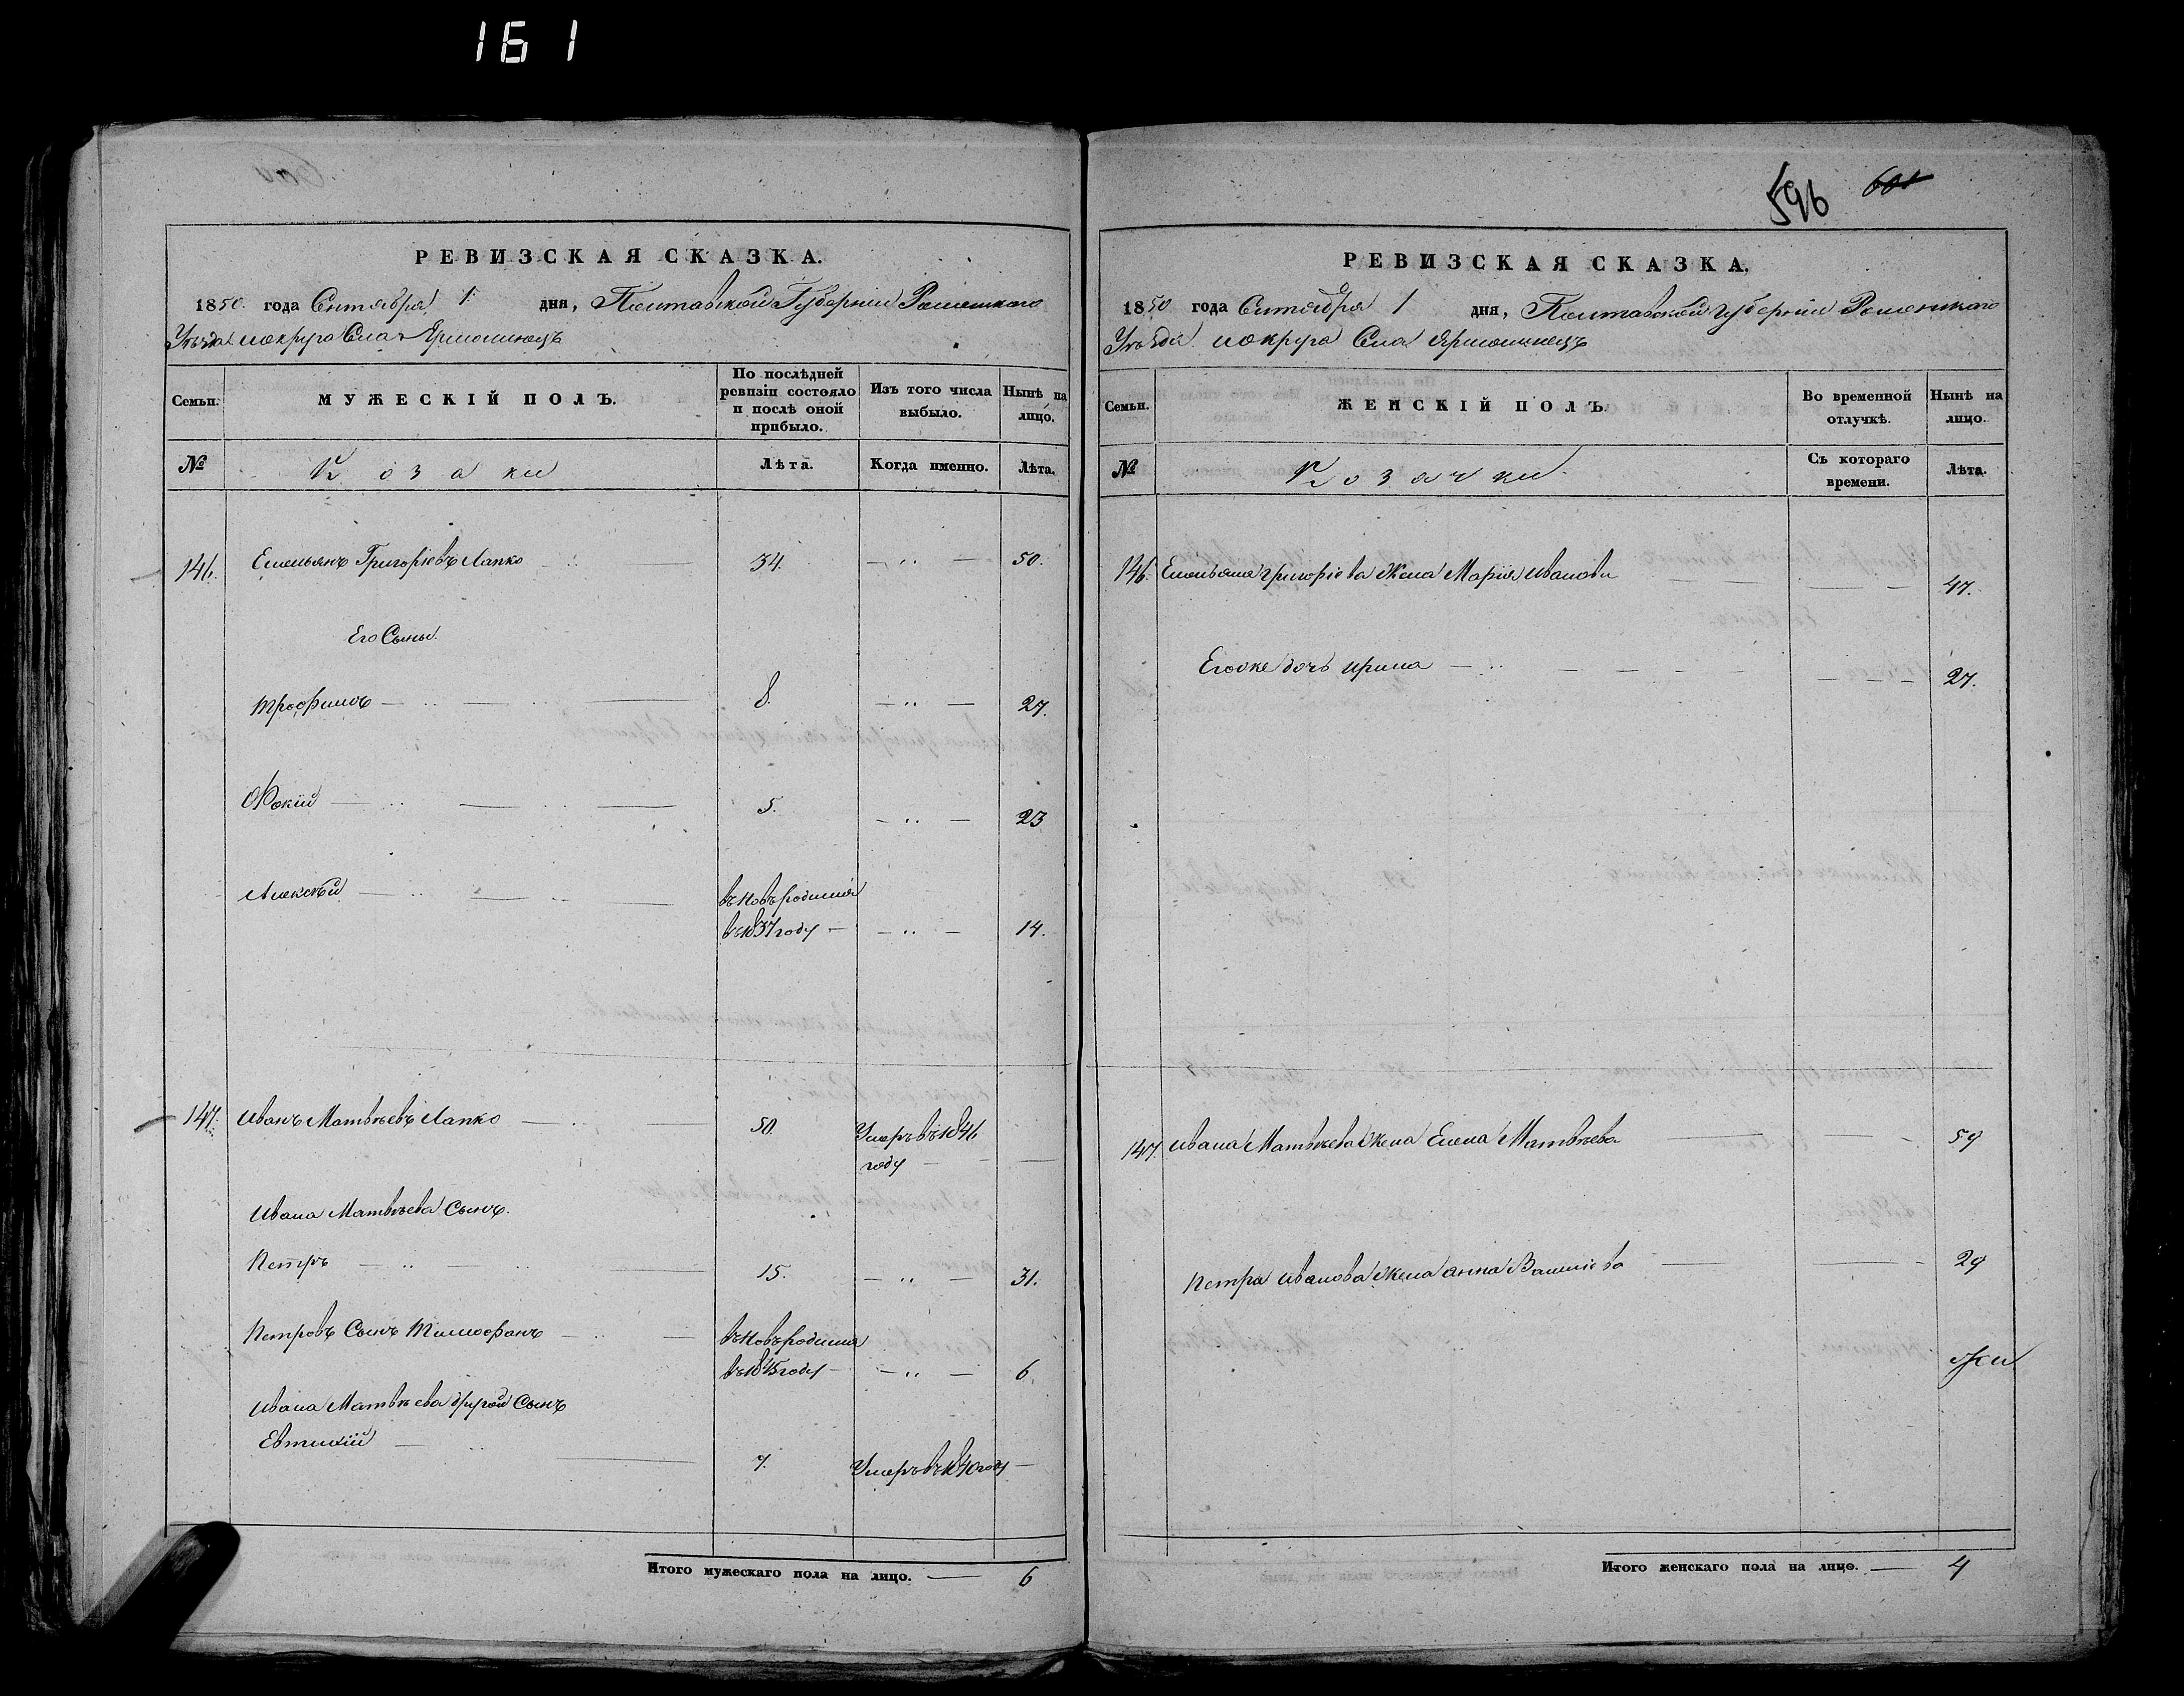 161
РЕВИЗСКАЯ СКАЗКА.
1850. года Сентября 1. дня, Полтавской Губерніи Роменскаго
Уѣзда и округа Села Ярмолинецъ
Семьи. МУЖЕСКІЙ ПОЛЪ. По послѣдней ревизіи состояло и послѣ оной прибыло. Изъ того числа выбыло. Нынѣ на лицо.
№ Козаки Лѣта. Когда именно. Лѣта.
146. Емельянъ Григоріевъ Лапко 34. 50.
Его Сыны.
Трофимъ 8. 27.
Фокій 5. 23
Алексѣй въ новь родился
въ 1837 году 14.
147. Иванъ Матвѣевъ Лапко 50. Умеръ въ 1846
году
Ивана Матвѣева Сынъ.
Петръ 15. 31.
Петровъ Сынъ Тимофанъ въ новь родился
въ 1845 году 6.
Ивана Матвѣева другой Сынъ
Евтихій 7. Умеръ въ 1840 году
Итого мужескаго пола на лицо. 6
596 601
РЕВИЗСКАЯ СКАЗКА.
1850 года Сентября 1 дня, Полтавской Губерніи Роменскаго
Уѣзда и округа Села Ярмолинецъ
Семьи. ЖЕНСКІЙ ПОЛЪ. Во временной отлучкѣ. Нынѣ на лицо.
№ Козачки Съ котораго времени. Лѣта.
146. Емельяна Григоріева Жена Марія Иванова 47.
Его же дочь Ирина 27.
147. Ивана Матвѣева Жена Елена Матвѣева 59
Петра Иванова Жена Анна Василіева 29
Итого женскаго пола на лицо. 4